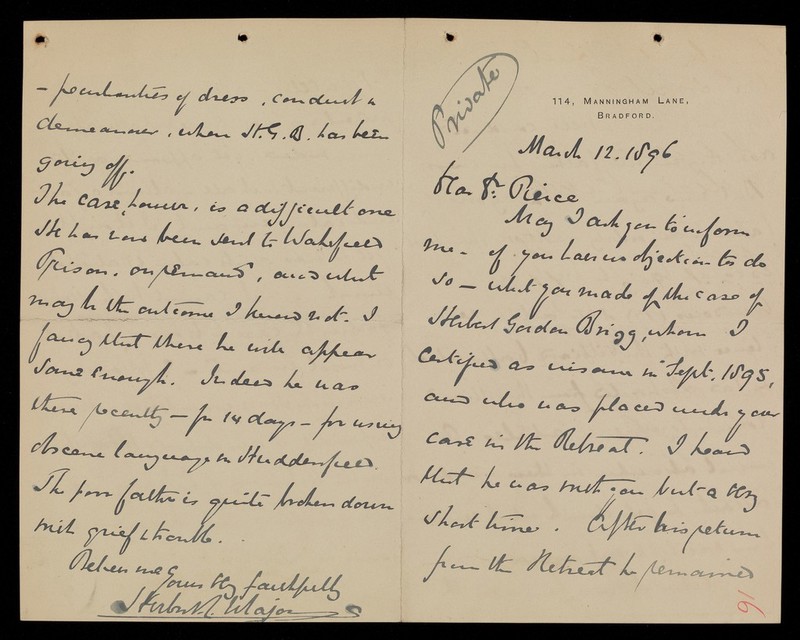 Private
114, MANNINGHAM LANE,
BRADFORD.
March 12. 1896
Dear Dr. Pierce
May I ask you to inform
me - if you have no objection to do
so - what you made of the case of
Herbert Gordon Brigg, whom I
Certified as insane in Sept. 1895,
and who was placed under your
care in the Retreat. I heard
that he was with you but a very
short time. After his return
from the Retreat he remained
16
- peculiarities of dress, conduct &
demeanour, when H.G.B. has been
going off.
The case, however, is a difficult one
He has now been sent to Wakefield
Prison, on remand, and what
may be the outcome I know not. I
fancy that there he will appear
Sane enough. Indeed he was
there recently - for 14 days - for using
obscene language in Huddersfield.
The poor father is quite broken down
with grief & trouble.
Believe me
Yours very faithfully
Herbert Major